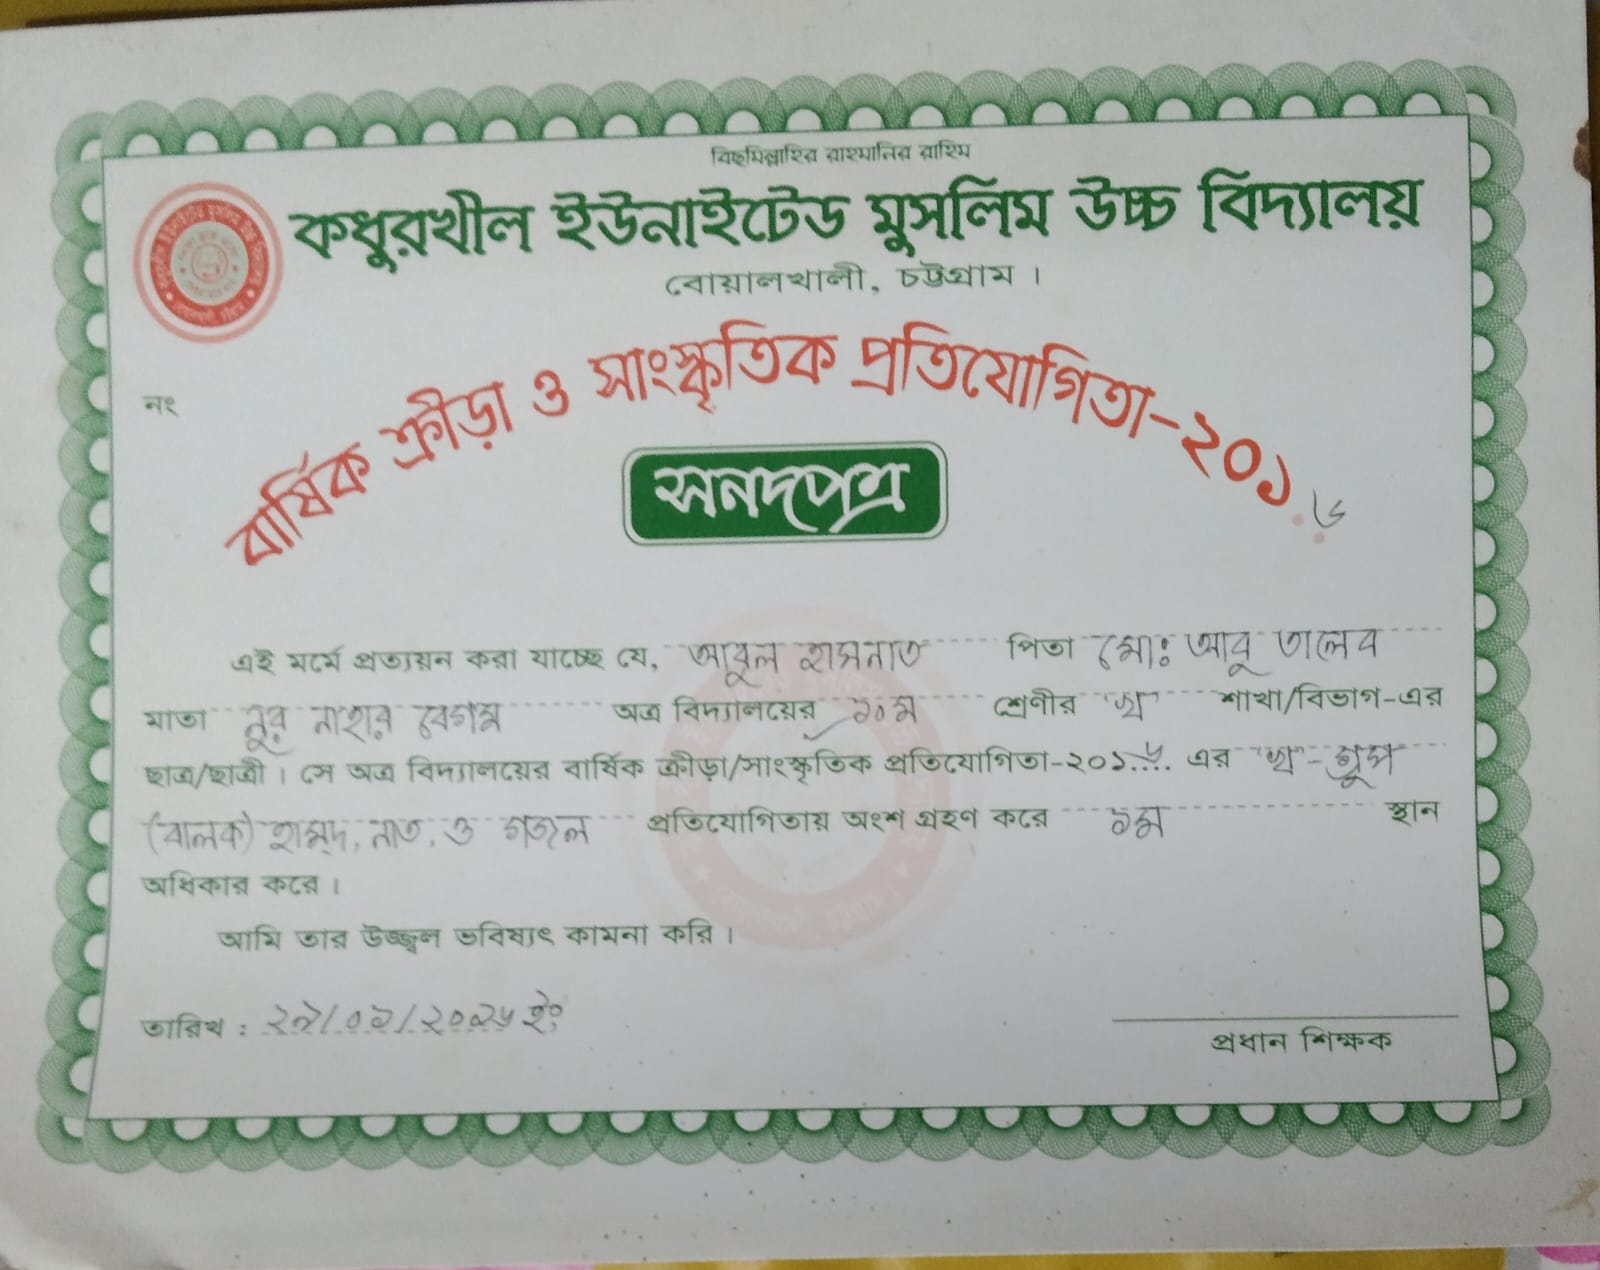 বিছমিল্লাহির রাহমানির রাহিম
কধুরখীল ইউনাইটেড মুসলিম উচ্চ বিদ্যালয়
বোয়ালখালী, চট্টগ্রাম ।
নং
বার্ষিক ক্রীড়া ও সাংস্কৃতিক প্রতিযোগিতা-২০১৬
সনদপত্র
এই মর্মে প্রত্যয়ন করা যাচ্ছে যে, আবুল হাসনাত পিতা মোঃ আবু তালেব
মাতা নুর নাহার বেগম অত্র বিদ্যালয়ের ১০ম শ্রেণীর "খ" শাখা/বিভাগ-এর
ছাত্র/ছাত্রী । সে অত্র বিদ্যালয়ের বার্ষিক ক্রীড়া/সাংস্কৃতিক প্রতিযোগিতা-২০১৬ এর "খ"-গ্রুপ
(বালক) হাম্দ, নাত, ও গজল প্রতিযোগিতায় অংশ গ্রহণ করে ১ম স্থান
অধিকার করে ।
আমি তার উজ্জ্বল ভবিষ্যৎ কামনা করি ।
তারিখ : ২৯/০১/২০১৬ ইং
প্রধান শিক্ষক